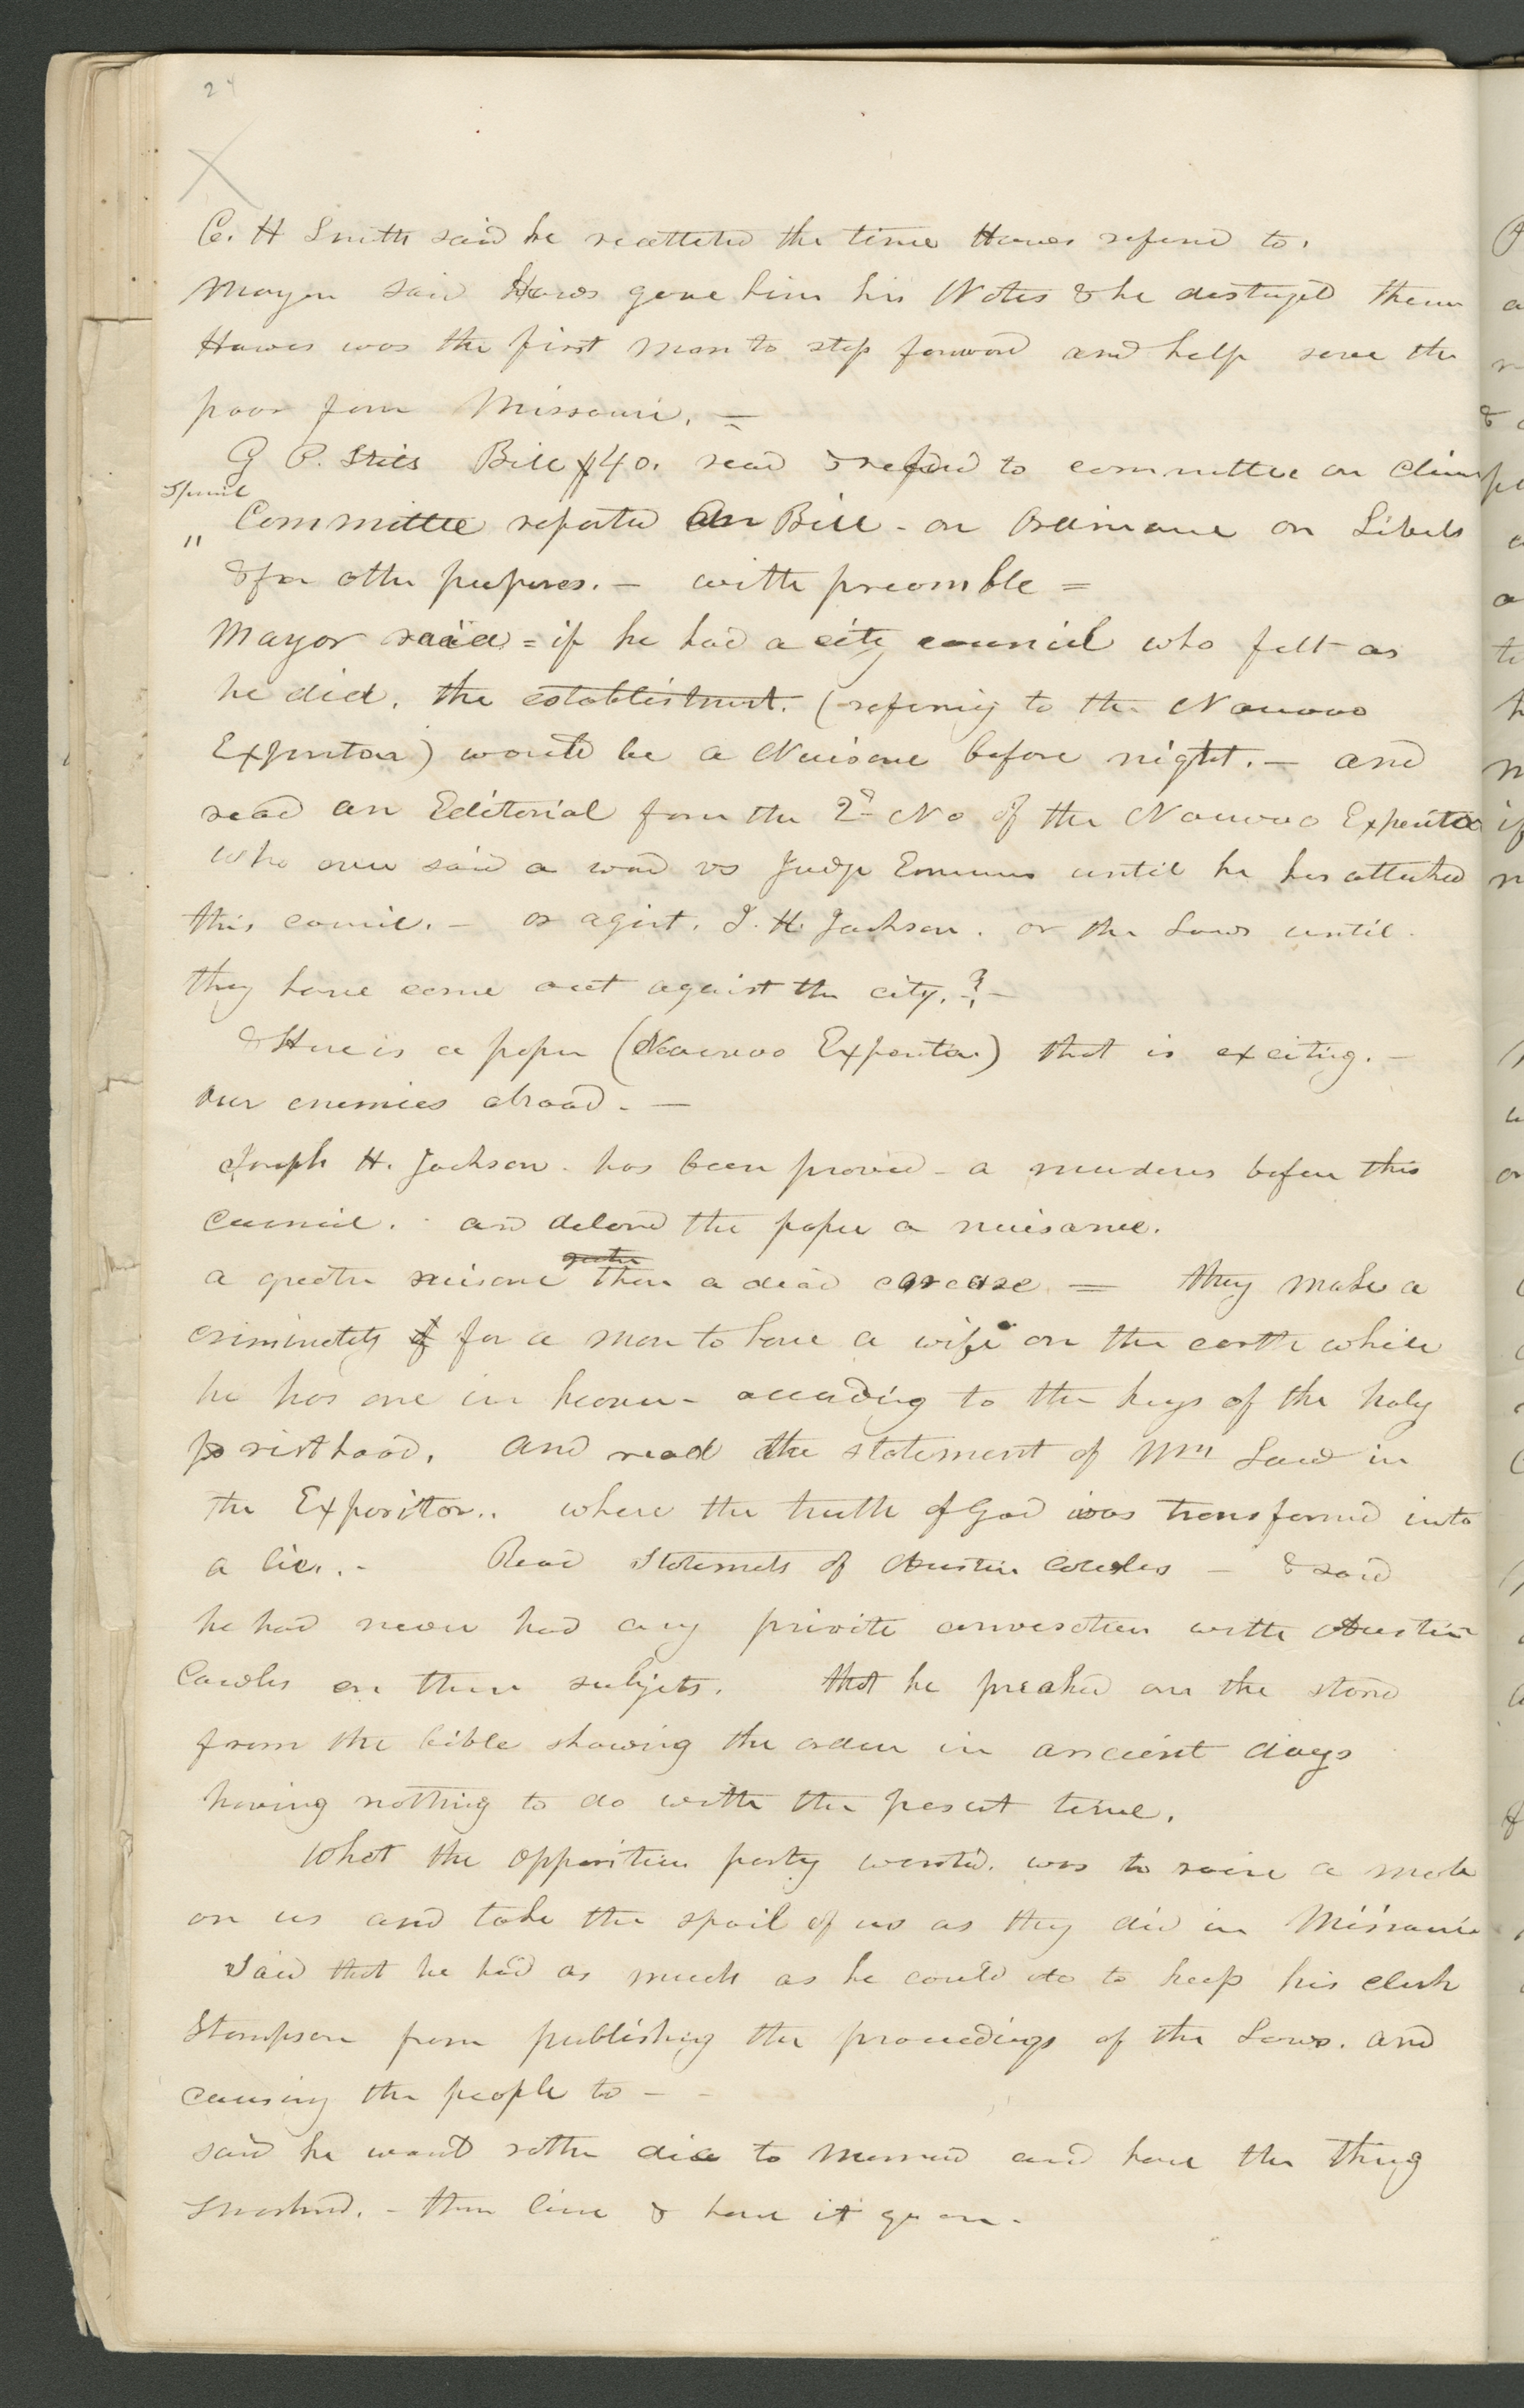 24
C. H Smith said he recollected the time Hawes refered to.
Mayor said Hawes gave him his Notes & he destroyed them
Hawes was the first man to step forward and help save the
poor from Missouri. =
G P. Stiles Bill $40. read & referd to committee on Claims
Special
" Committee reported an Bill - on Ordinance on Libels
& for other purposes. — with preamble =
Mayor said = if he had a city council who felt as
he did, the establishment. (refering to the Nauvoo
Expositor) would be a Nuisance before night. — and
read an Editorial from the 2d No of the Nauvoo Expositor
who ever said a word vs Judge Emmons until he has attacked
this council. — or agist. J. H. Jackson. or the Laws until
they have come out against the city.? —
& Here is a paper (Nauvoo Expositor) that is exciting. —
our enemies abroad. —
Joseph H. Jackson - has been proved - a murderer before this
council. - and delared the paper a nuisance.
greater
a greater nuisance than a dead carcase = they make a
criminality of for a man to have a wife on the earth while
he has one in heaven - according to the keys of the holy
priesthood. and read the statement of Wm Law in
the Expositor.. where the truth of God was transformed into
a lie. - Read Statemets of Austin Cowles — & said
he had never had any private conversation with Austin
Cowles on these subjects. that he preached on the stand
from the bible showing the order in ancient days
having nothing to do with the present time.
What the opposition party wanted. was to raise a mob
on us and take the spoil of us as they did in Missouri
said that he had as much as he could do to keep his clerk
Thompson from publishing the proceedings of the Laws. and
causing the people to - -
said he would rather die to morrow and have the thing
smashed. - than live & have it go on. -